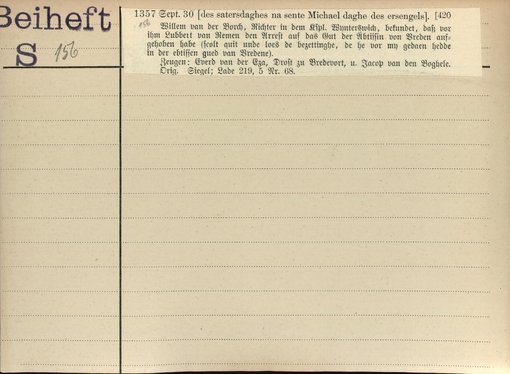 Beiheft
S 156
1357 Sept. 30 [des satersdaghes na sente Michael daghe des ersengels]. [420
156
Willem van der Borch, Richter in dem Kspl. Wynterswich, bekundet, daß vor
ihm Lubbert van Remen den Arrest auf das Gut der Äbtissin von Vreden auf-
gehoben habe (scolt quit unde loes de bezettinghe, de he vor my gedaen hedde
in der ebtissen gued van Vredene).
Zeugen: Everd van der Eza, Drost zu Bredevort, u. Jacop van den Boghele.
Orig. Siegel; Lade 219, 5 Nr. 68.